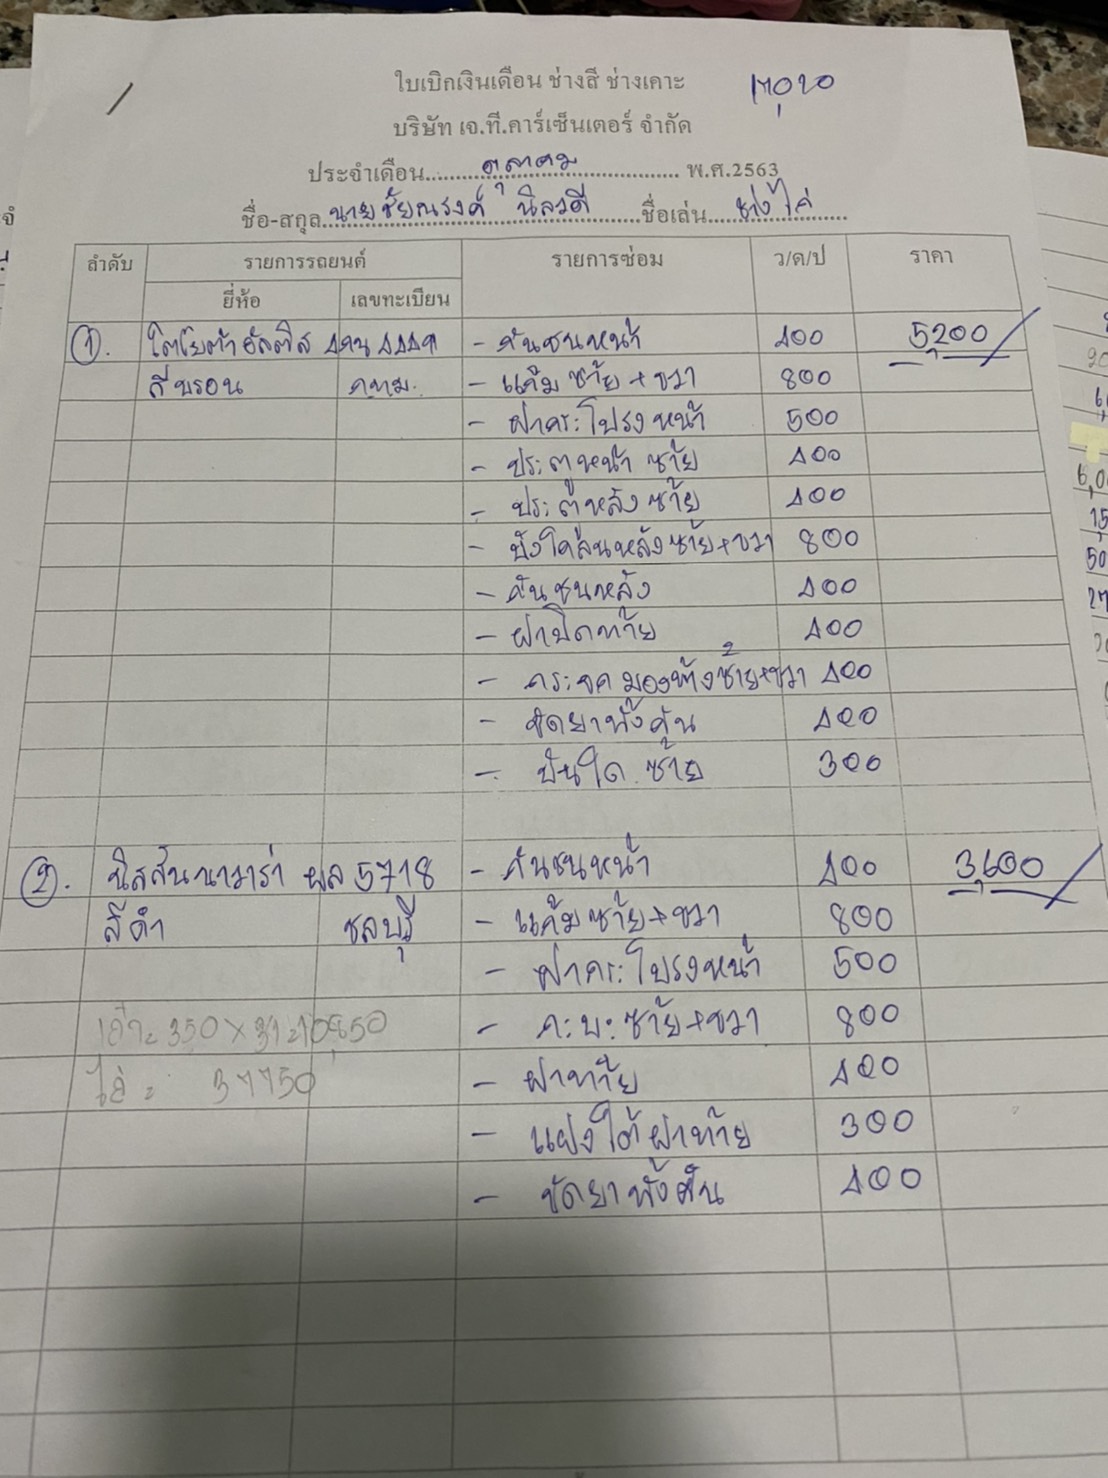 ใบเบิกเงินเดือน ช่างสี ช่างเคาะ
บริษัท เจ.ที.คาร์เซ็นเตอร์ จำกัด
ประจำเดือน ตุลาคม พ.ศ.2563
ชื่อ-สกุล นายชัยณรงค์ นิลวดี ชื่อเล่น ช่างไก่
ลำดับ รายการรถยนต์ รายการซ่อม ว/ด/ป ราคา
ยี่ห้อ เลขทะเบียน
1. โตโยต้าอัลติส - กันชนหน้า 400 5,200
สีบรอน กทม. - แก้มซ้าย+ขวา 800
- ฝากระโปรงหน้า 500
- ประตูหน้าซ้าย 400
- ประตูหลังซ้าย 400
- บังโคลนหลังซ้าย+ขวา 800
- กันชนหลัง 400
- ฝาปิดท้าย 400
- กระจกมองข้างซ้าย+ขวา 2 400
- ขัดยาทั้งคัน 400
- บันใดซ้าย 300
2. นิสสันนาวาร่า ผล 5718 - กันชนหน้า 400 3,600
สีดำ ชลบุรี - แก้มซ้าย+ขวา 800
- ฝากระโปรงหน้า 500
- กะบะซ้าย+ขวา 800
350 x 31 = 10,850
- ฝาท้าย 400
37750
- แผงใต้ฝาท้าย 300
- ขัดยาทั้งคัน 400